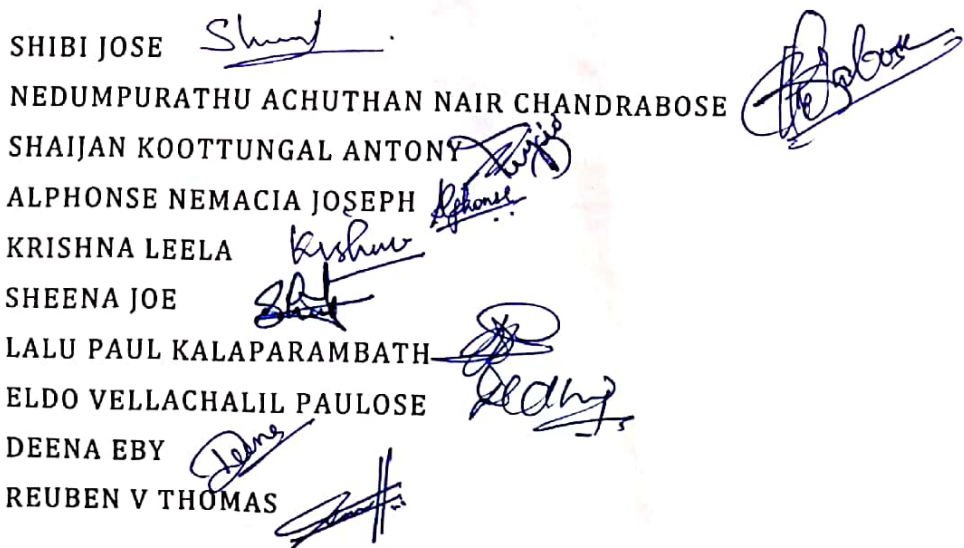 SHIBI JOSE
NEDUMPURATHU ACHUTHAN NAIR CHANDRABOSE
SHAIJAN KOOTTUNGAL ANTONY
ALPHONSE NEMACIA JOSEPH Alphonse
KRISHNA LEELA
SHEENA JOE
LALU PAUL KALAPARAMBATH
ELDO VELLACHALIL PAULOSE
DEENA EBY Deena
REUBEN V THOMAS